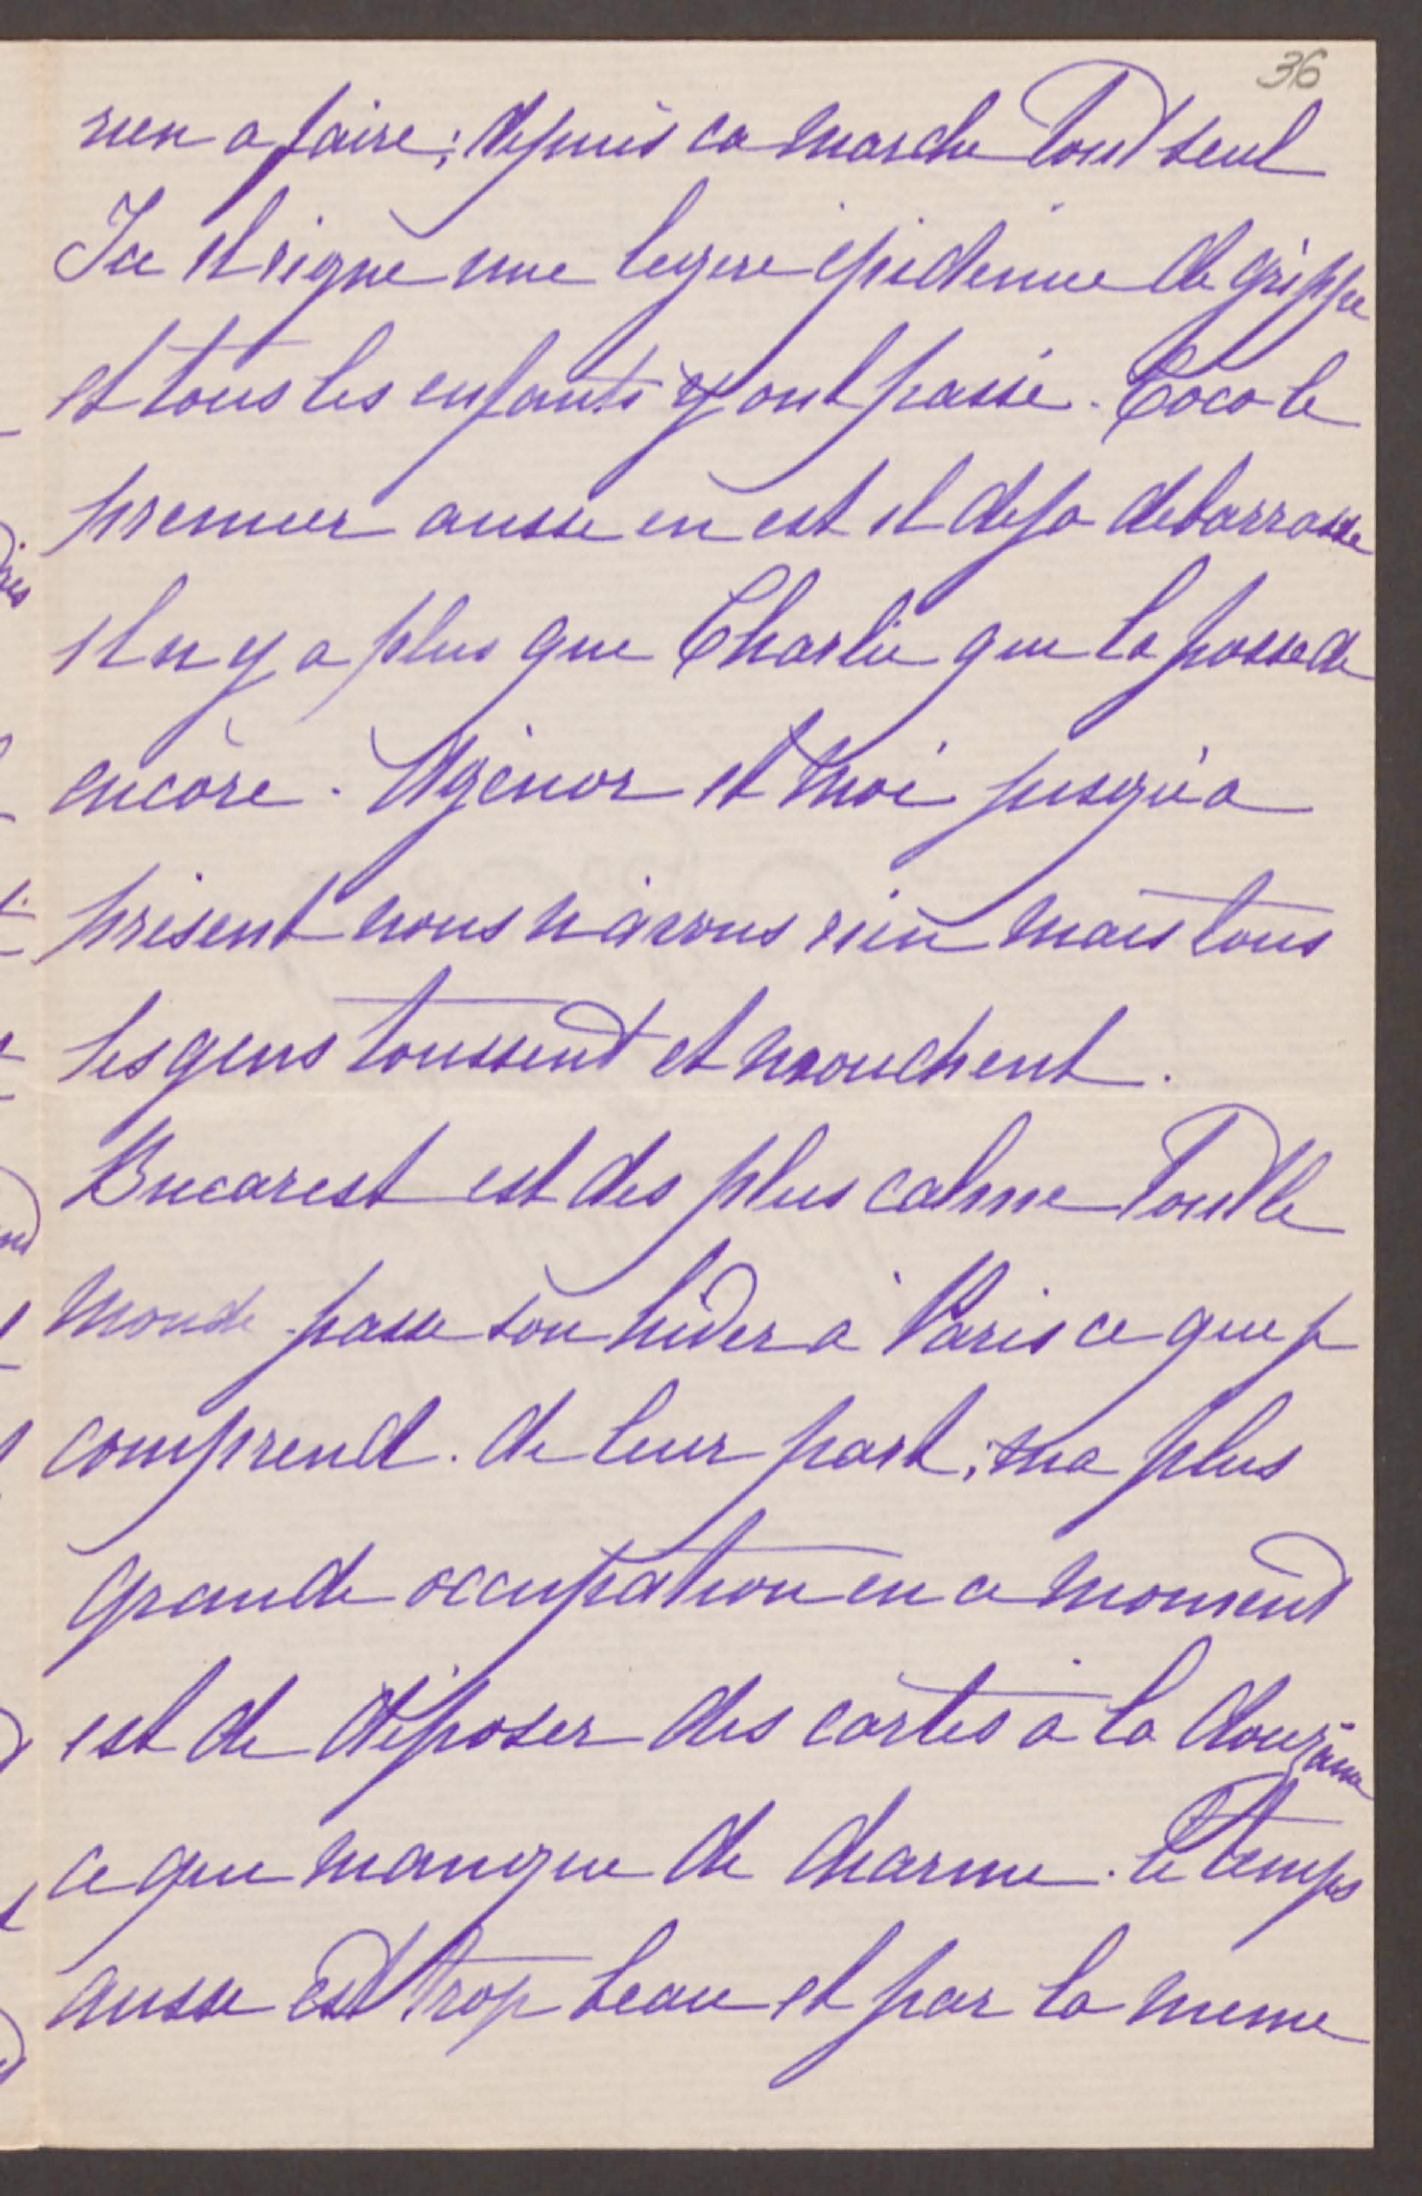 36
rien a faire; depuis ca marche Tout seul
Ici il règne une legere épidemie de grippe
et tous les enfants y ont passé. Coco le
premier aussi en est il deja debarrasse
il n y a plus que Charlie qui la possede
encore. Agénor et moi jusqu'a
présent nous n'avons rien mais tous
les gens toussent et mouchent.
Bucarest est des plus calme Tout le
monde passe son hiver a Paris ce que je
comprend. de leur part; ma plus
grande occupation en ce moment
est de déposer des cartes à la douzaine
ce qui manque de charme. le temps
aussi est trop beau et par la meme